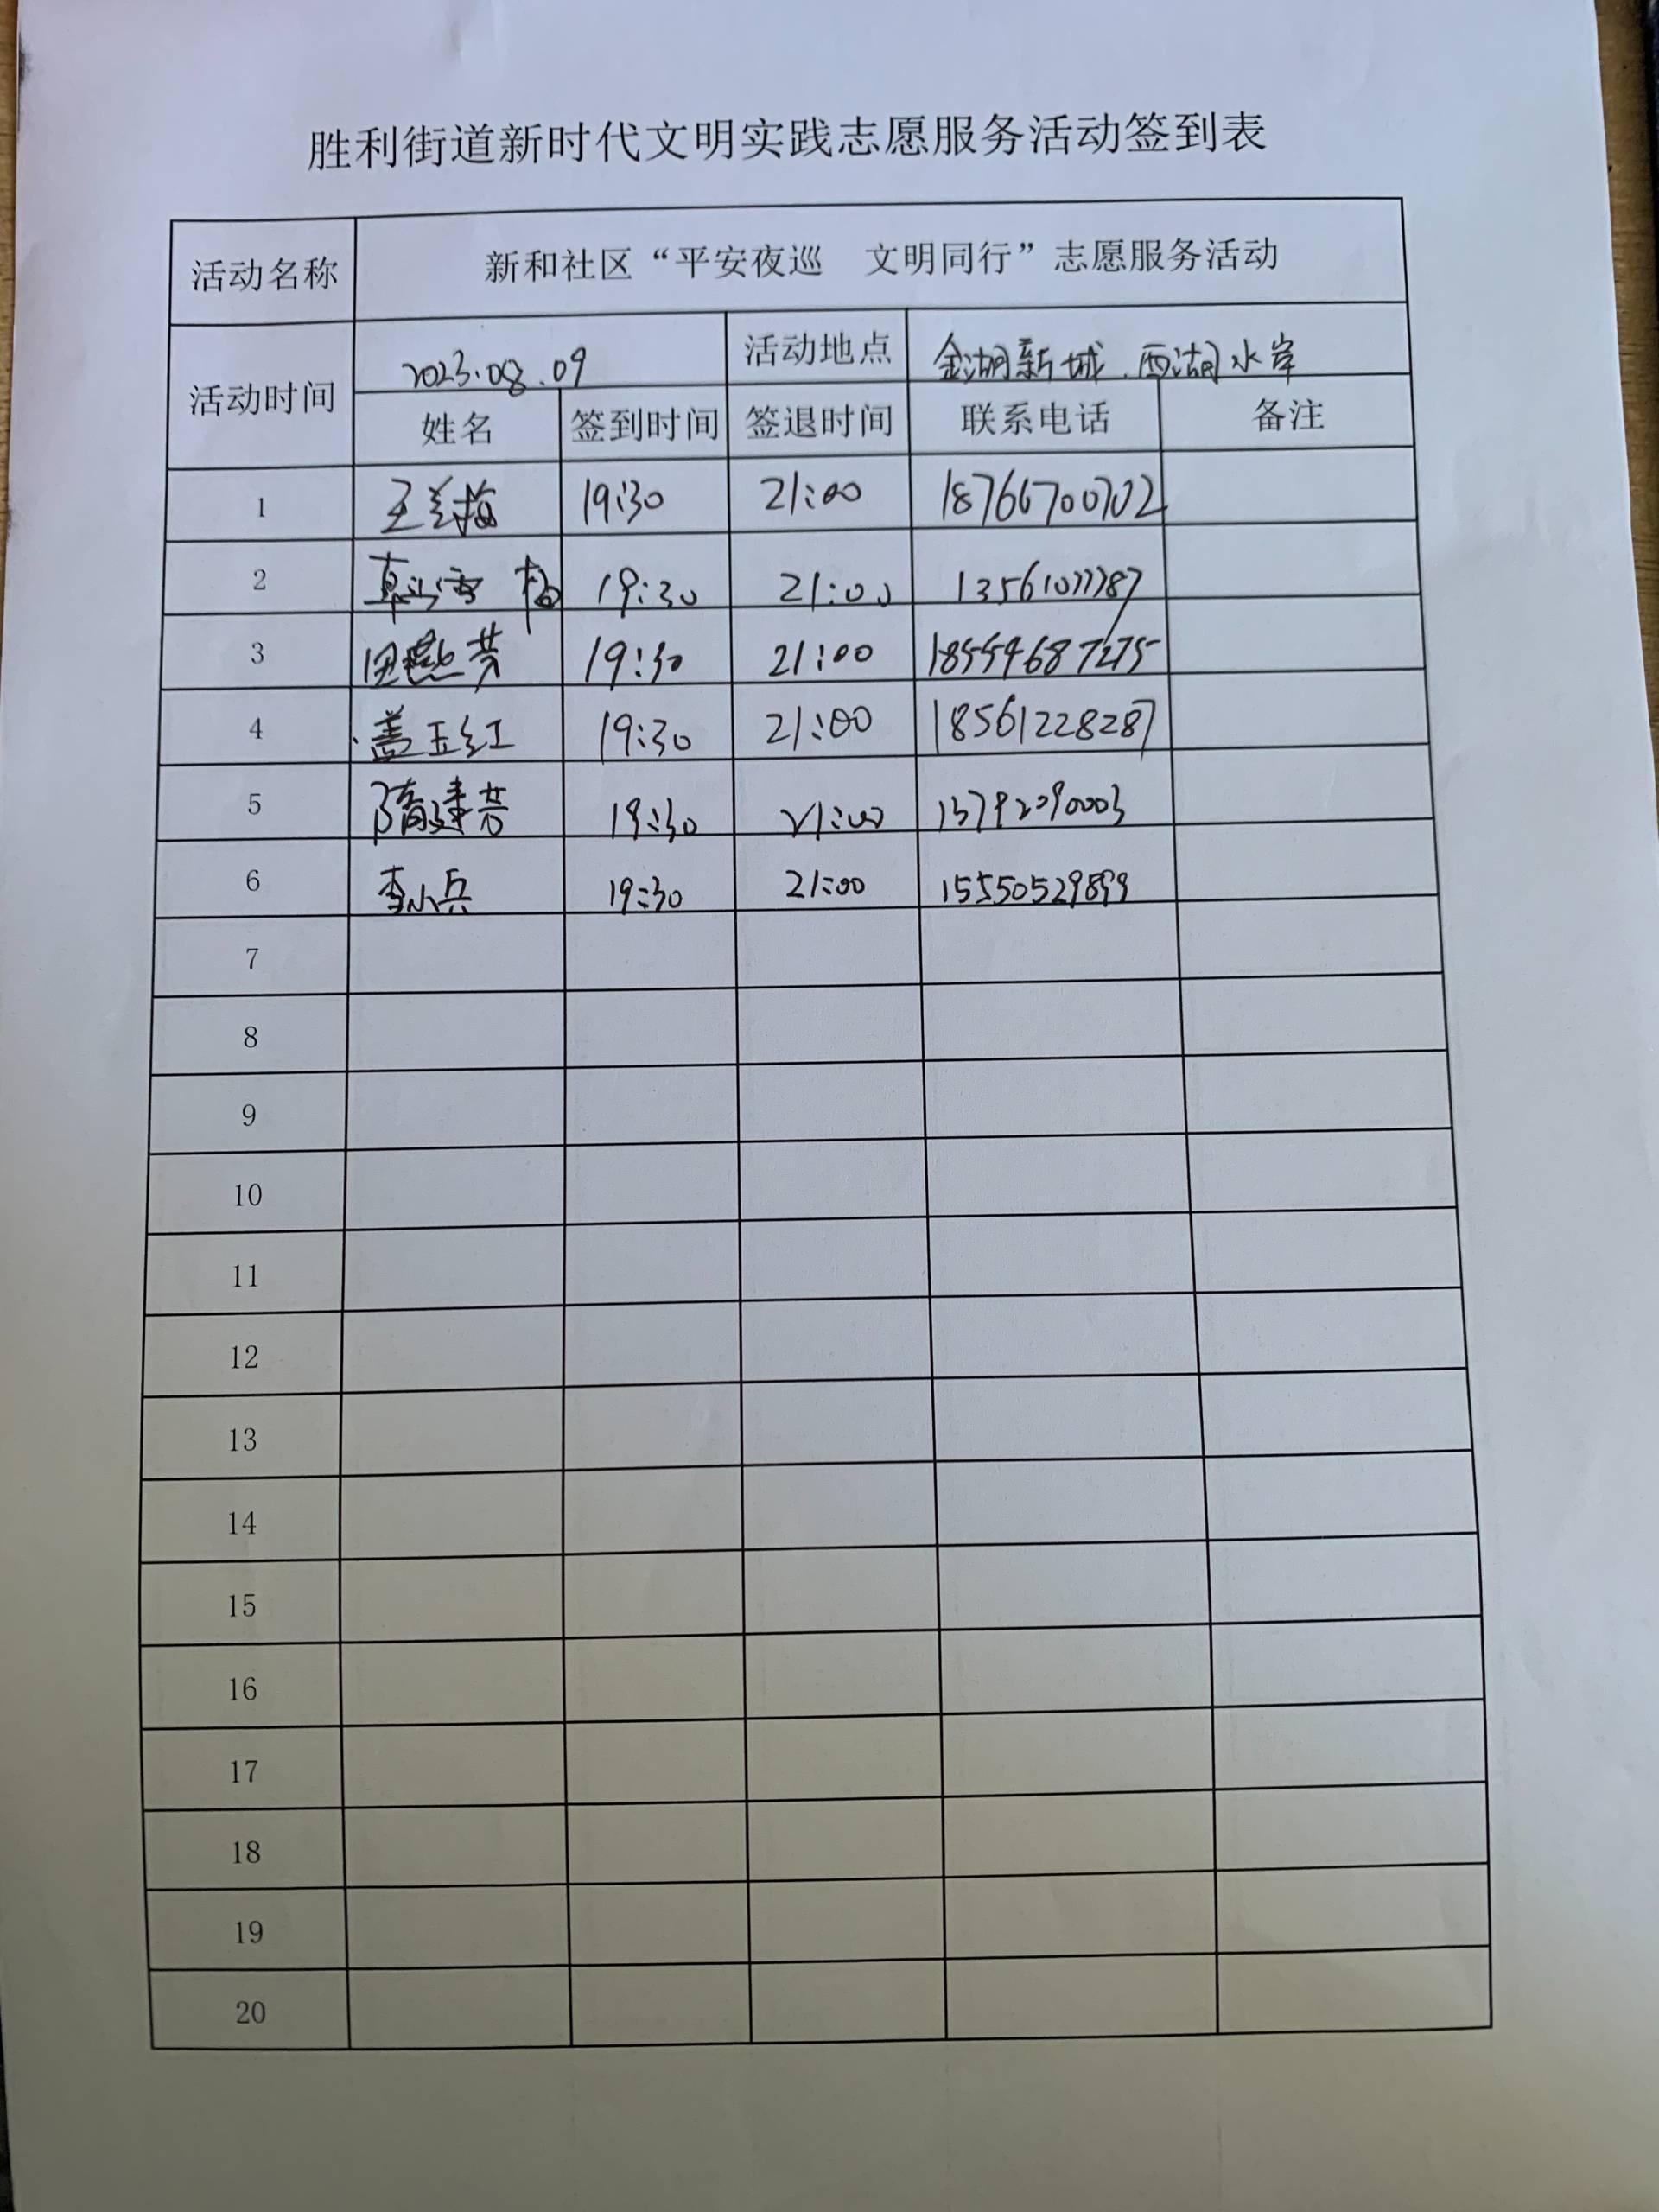 胜利街道新时代文明实践志愿服务活动签到表
活动名称 新和社区“平安夜巡 文明同行”志愿服务活动
活动时间 2023.08.09 活动地点 金湖新城.西湖水岸
姓名 签到时间 签退时间 联系电话 备注
1 王兰梅 19:30 21:00 18766700702
2 19:30 21:00 13561077787
3 田燕芳 19:30 21:00 18554687275
4 盖玉红 19:30 21:00 18561228287
5 隋建芳 19:30 21:00 13792090003
6 李小兵 19:30 21:00 15550529899
7
8
9
10
11
12
13
14
15
16
17
18
19
20